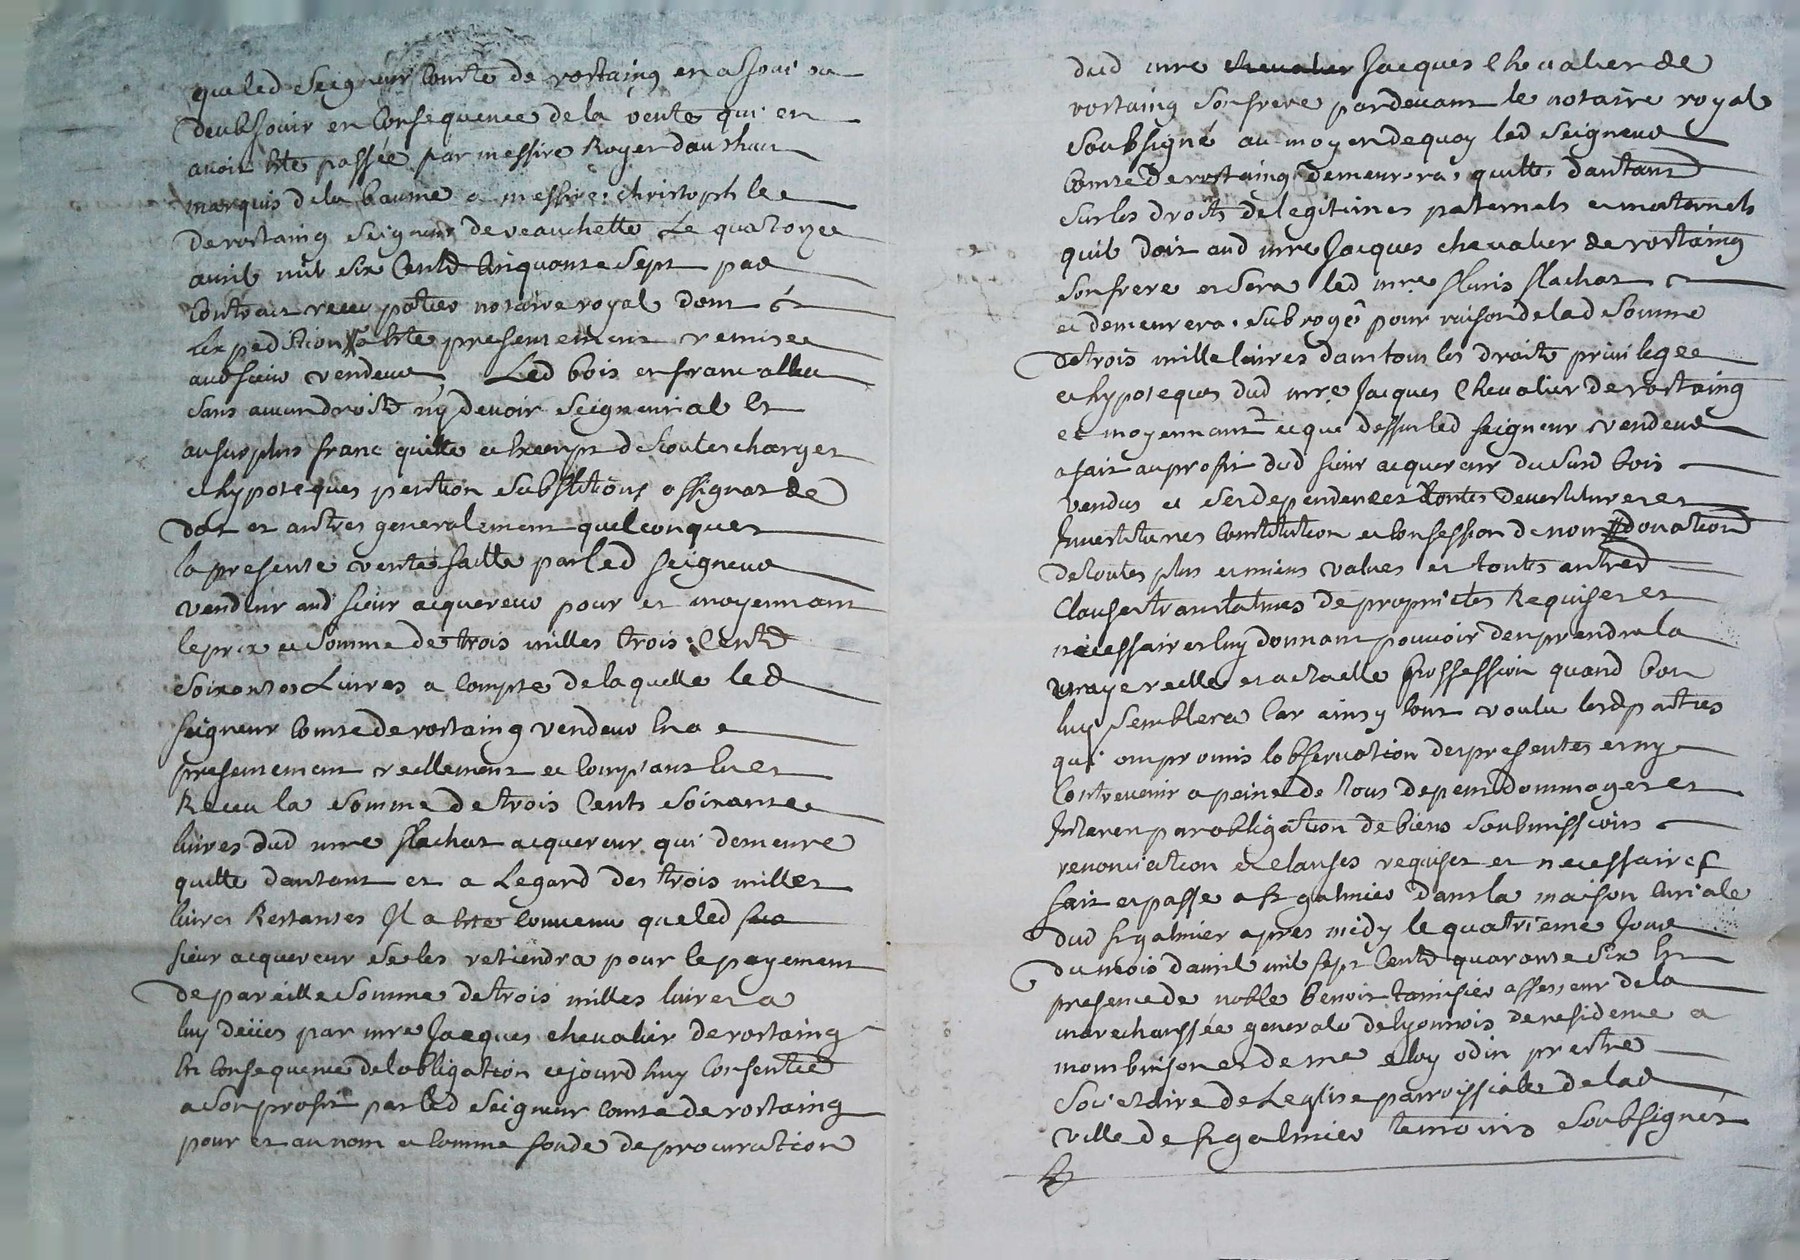 que led Seigneur Comte de rostaing en a Joui ou
deub Jouir en Consequence de la vente qui en
avoit Ette passée par messire Roger
marquis de la baume a messire christophle
de rostaing Seigneur de veauchette Le quatorze
avril mil Six Cents Cinquante Sept par
Contract receu paties notaire royal dont
Lexpedition a Ette presentement remise
aud sieur vendeur Led bois en franc alleu
Sans aucun droict ny devoir Seigneurial Et
au surplus franc quitte et Exempt de toutes charges
et hypoteques pention Substitions assignat de
dot et autres generalement quelconques
la presente vente faitte par led Seigneur
vendeur aud sieur acquereur pour et moyennant
le prix et Somme de trois milles trois Cents
Soixantes Livres a Compte de laquelle led
Seigneur Comte de rostaing vendeur En a
presentement reellement et Comptant Eu et
Receu la Somme de trois Cents Soixante
livres dud mre flachat acquereur qui demeure
quitte dautant et a Legard des trois milles
livres Restantes Il a Ette Convenu que led
sieur acquereur Se les retiendra pour le payement
de pareille Somme de trois milles livres a
luy deües par mre Jacques chevalier de rostaing
En Consequence de lobligation cejourdhuy Consentie
a Son profit par led Seigneur Comte de rostaing
pour et au nom et Comme fondé de procuration
dud mre chevalier Jacques Chevalier de
rostaing Son frere pardevant le notaire royal
Soubsigné au moyen de quoy led Seigneur
Comte de rostaing demeurera quitte dautant
Sur les droits de legitimes paternels et maternels
quil doit aud mre Jacques chevalier de rostaing
Son frere et Sera led mre fleuris flachat
et demeurera Subrogé pour raison de lad Somme
de trois mille livres dans tous les droits privileges
et hypoteques dud mre Jacques Chevalier de rostaing
et moyennant ce que dessus led Seigneur vendeur
a fait au profit dud sieur acquereur du Susd bois
vendus et Ses dependences toutes devestitures et
Investitures Constitution et Confession de nom donation
de toutes plus et moins values et touts autres
Clauses translatives de proprietés Requises et
necessaires luy donnant pouvoir den prendre la
vraye reelle et actuelle possession quand bon
luy Semblera Car ainsy lont voulu lesd parties
qui ont promis lobservation des presentes et ny
Contrevenir a peine de tous depens dommages et
Interets par obligation de biens Soubmissions
renonciation et clauses requises et necessaires
fait et passé a st galmier dans la maison Curiale
dud st galmier apres midy le quatrieme Jour
du mois davril mil Sept Cents quarante Six En
presence de noble benoit tamisier assesseur de la
marechaussée generale de lyonnois de residence a
montbrison et de mre eloy odin prestre
Societaire de Leglise parroissiale de lad
ville de st galmier temoins Soubsignés